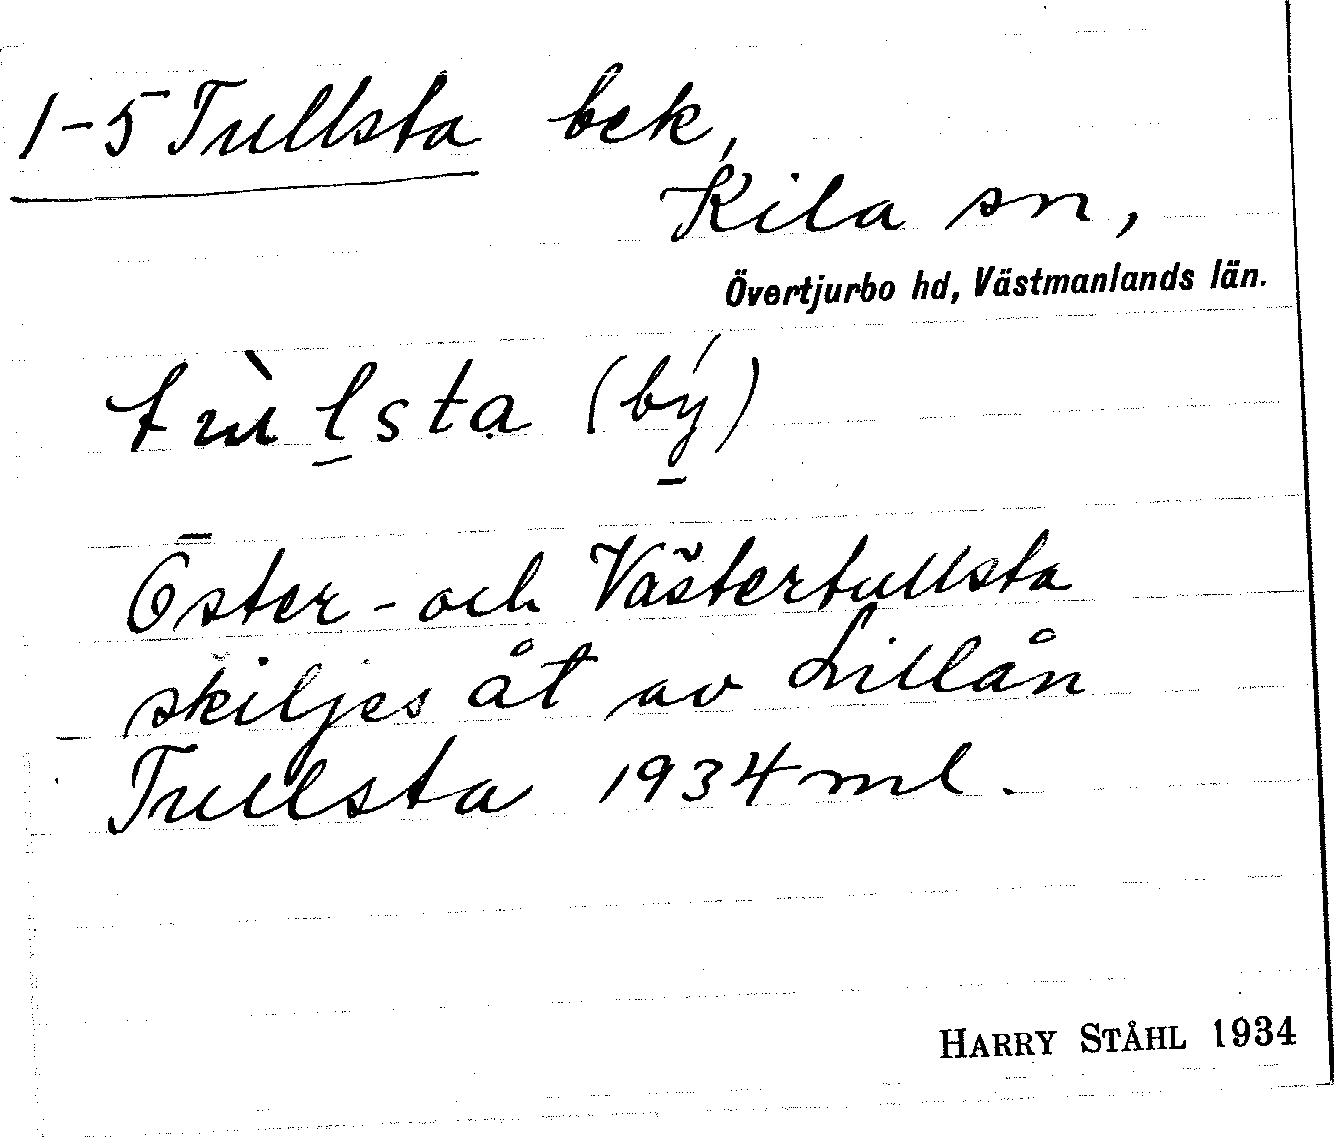 1-5 Tullsta bek,
Kila sn,
Övertjurbo hd, Västmanlands län.
tùl̠sta (bý̠)
Öster- och Västertullsta
skiljes åt av Lillån
Tullsta 1934 ml.
HARRY STÅHL 1934